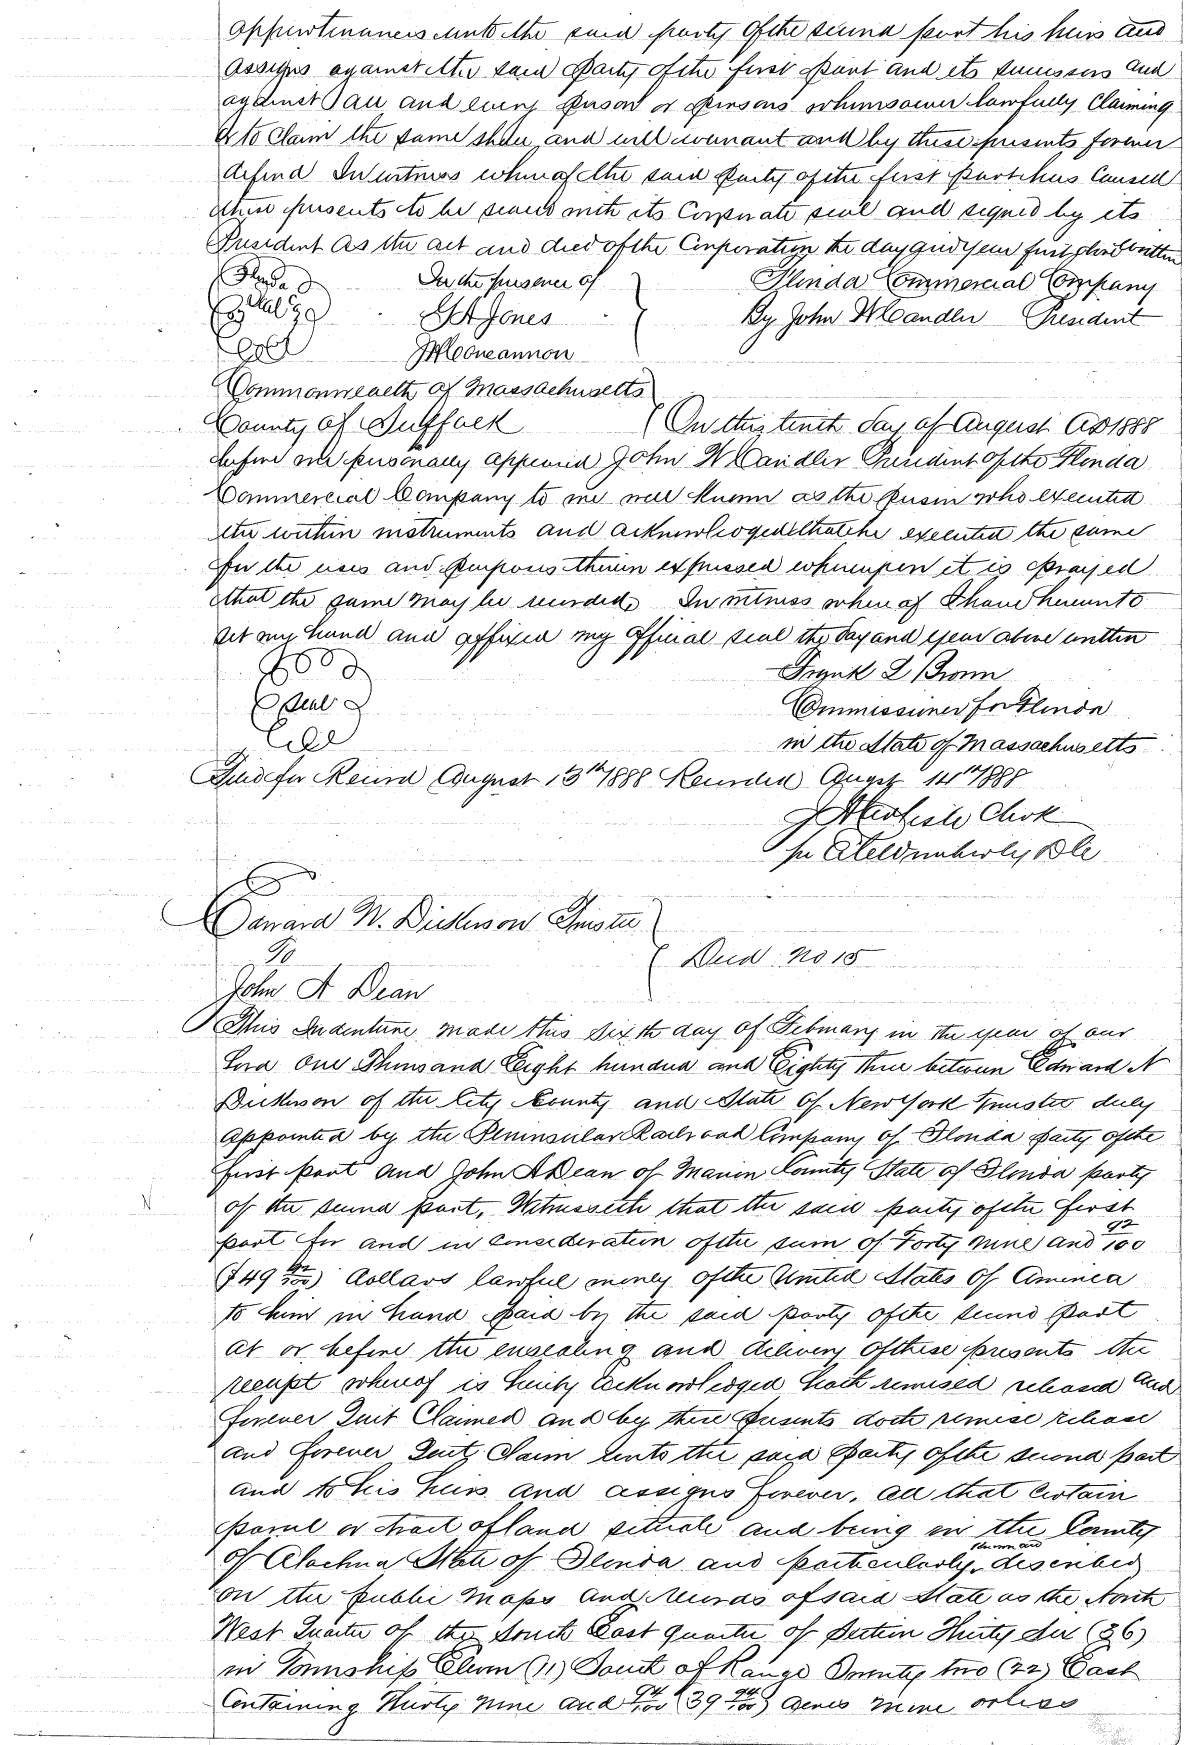 appurtenances unto the said party of the second part his heirs and
assigns against the said Party of the first Part and its successors and
against all and every person or persons whomsoever lawfully Claiming
or to Claim the same shall and will warrant and by these presents forever
defend In witness whereof the said Party of the first Part has Caused
these presents to be sealed with its Corporate seal and signed by its
President as the act and deed of the Corporation the day and year first above written
Florida In the presence of Florida Commercial Company
Seal Jones By John W Candler President
Commonwealth of Massachusetts
County of Suffock On this tenth day of August AD 1888
before me personally appeared John W Candler President of the Florida
Commercial Company to me well known as the person who executed
the within instruments and acknowledged that he executed the same
for the uses and purposes therein expressed whereupon it is prayed
that the same may be recorded. In witness where of I have hereunto
set my hand and affixed my official seal the day and year above written
Frank L Brown
Seal Commissioner for Florida
in the State of Massachusetts
Filed for Record August 13th 1888 Recorded Augst 14th 1888
Clerk
per DC
Edward N. Dickerson Trustee
To Deed no 15
John A Dean
This Indenture made this Sixth day of February in the year of our
Lord One Thousand Eight hundred and Eighty three between Edward N
Dickerson of the City County and State of New York Trustee duly
appointed by the Peninsular Railroad Company of Florida party of the
first part and John A Dean of Marion County State of Florida party
of the second part, Witnesseth that the said party of the first
part for and in consideration of the sum of Forty nine and 92/100
($49 92/100) dollars lawful money of the United States of America
to him in hand paid by the said party of the second part
at or before the ensealing and delivery of these presents the
receipt whereof is hereby acknowledged hath remised released and
forever Quit Claimed and by these presents doth remise release
and forever Quit Claim unto the said Party of the second part
and to his heirs and assigns forever, all that certain
parcel or tract of land situate and being in the County
of Alachua State of Florida and particularly known and described
on the public maps and records of said State as the North
West Quarter of the South East quarter of Section Thirty Six (36)
in Township Eleven (11) South of Range Twenty two (22) East
Containing Thirty nine and 94/100 (39 94/100) acres more or less